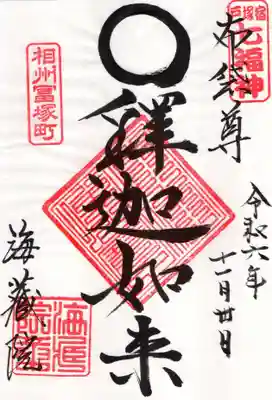 戸塚宿
七福神
布袋尊
令和六年
十一月卅日
釋迦如来
相州冨塚町
海蔵院